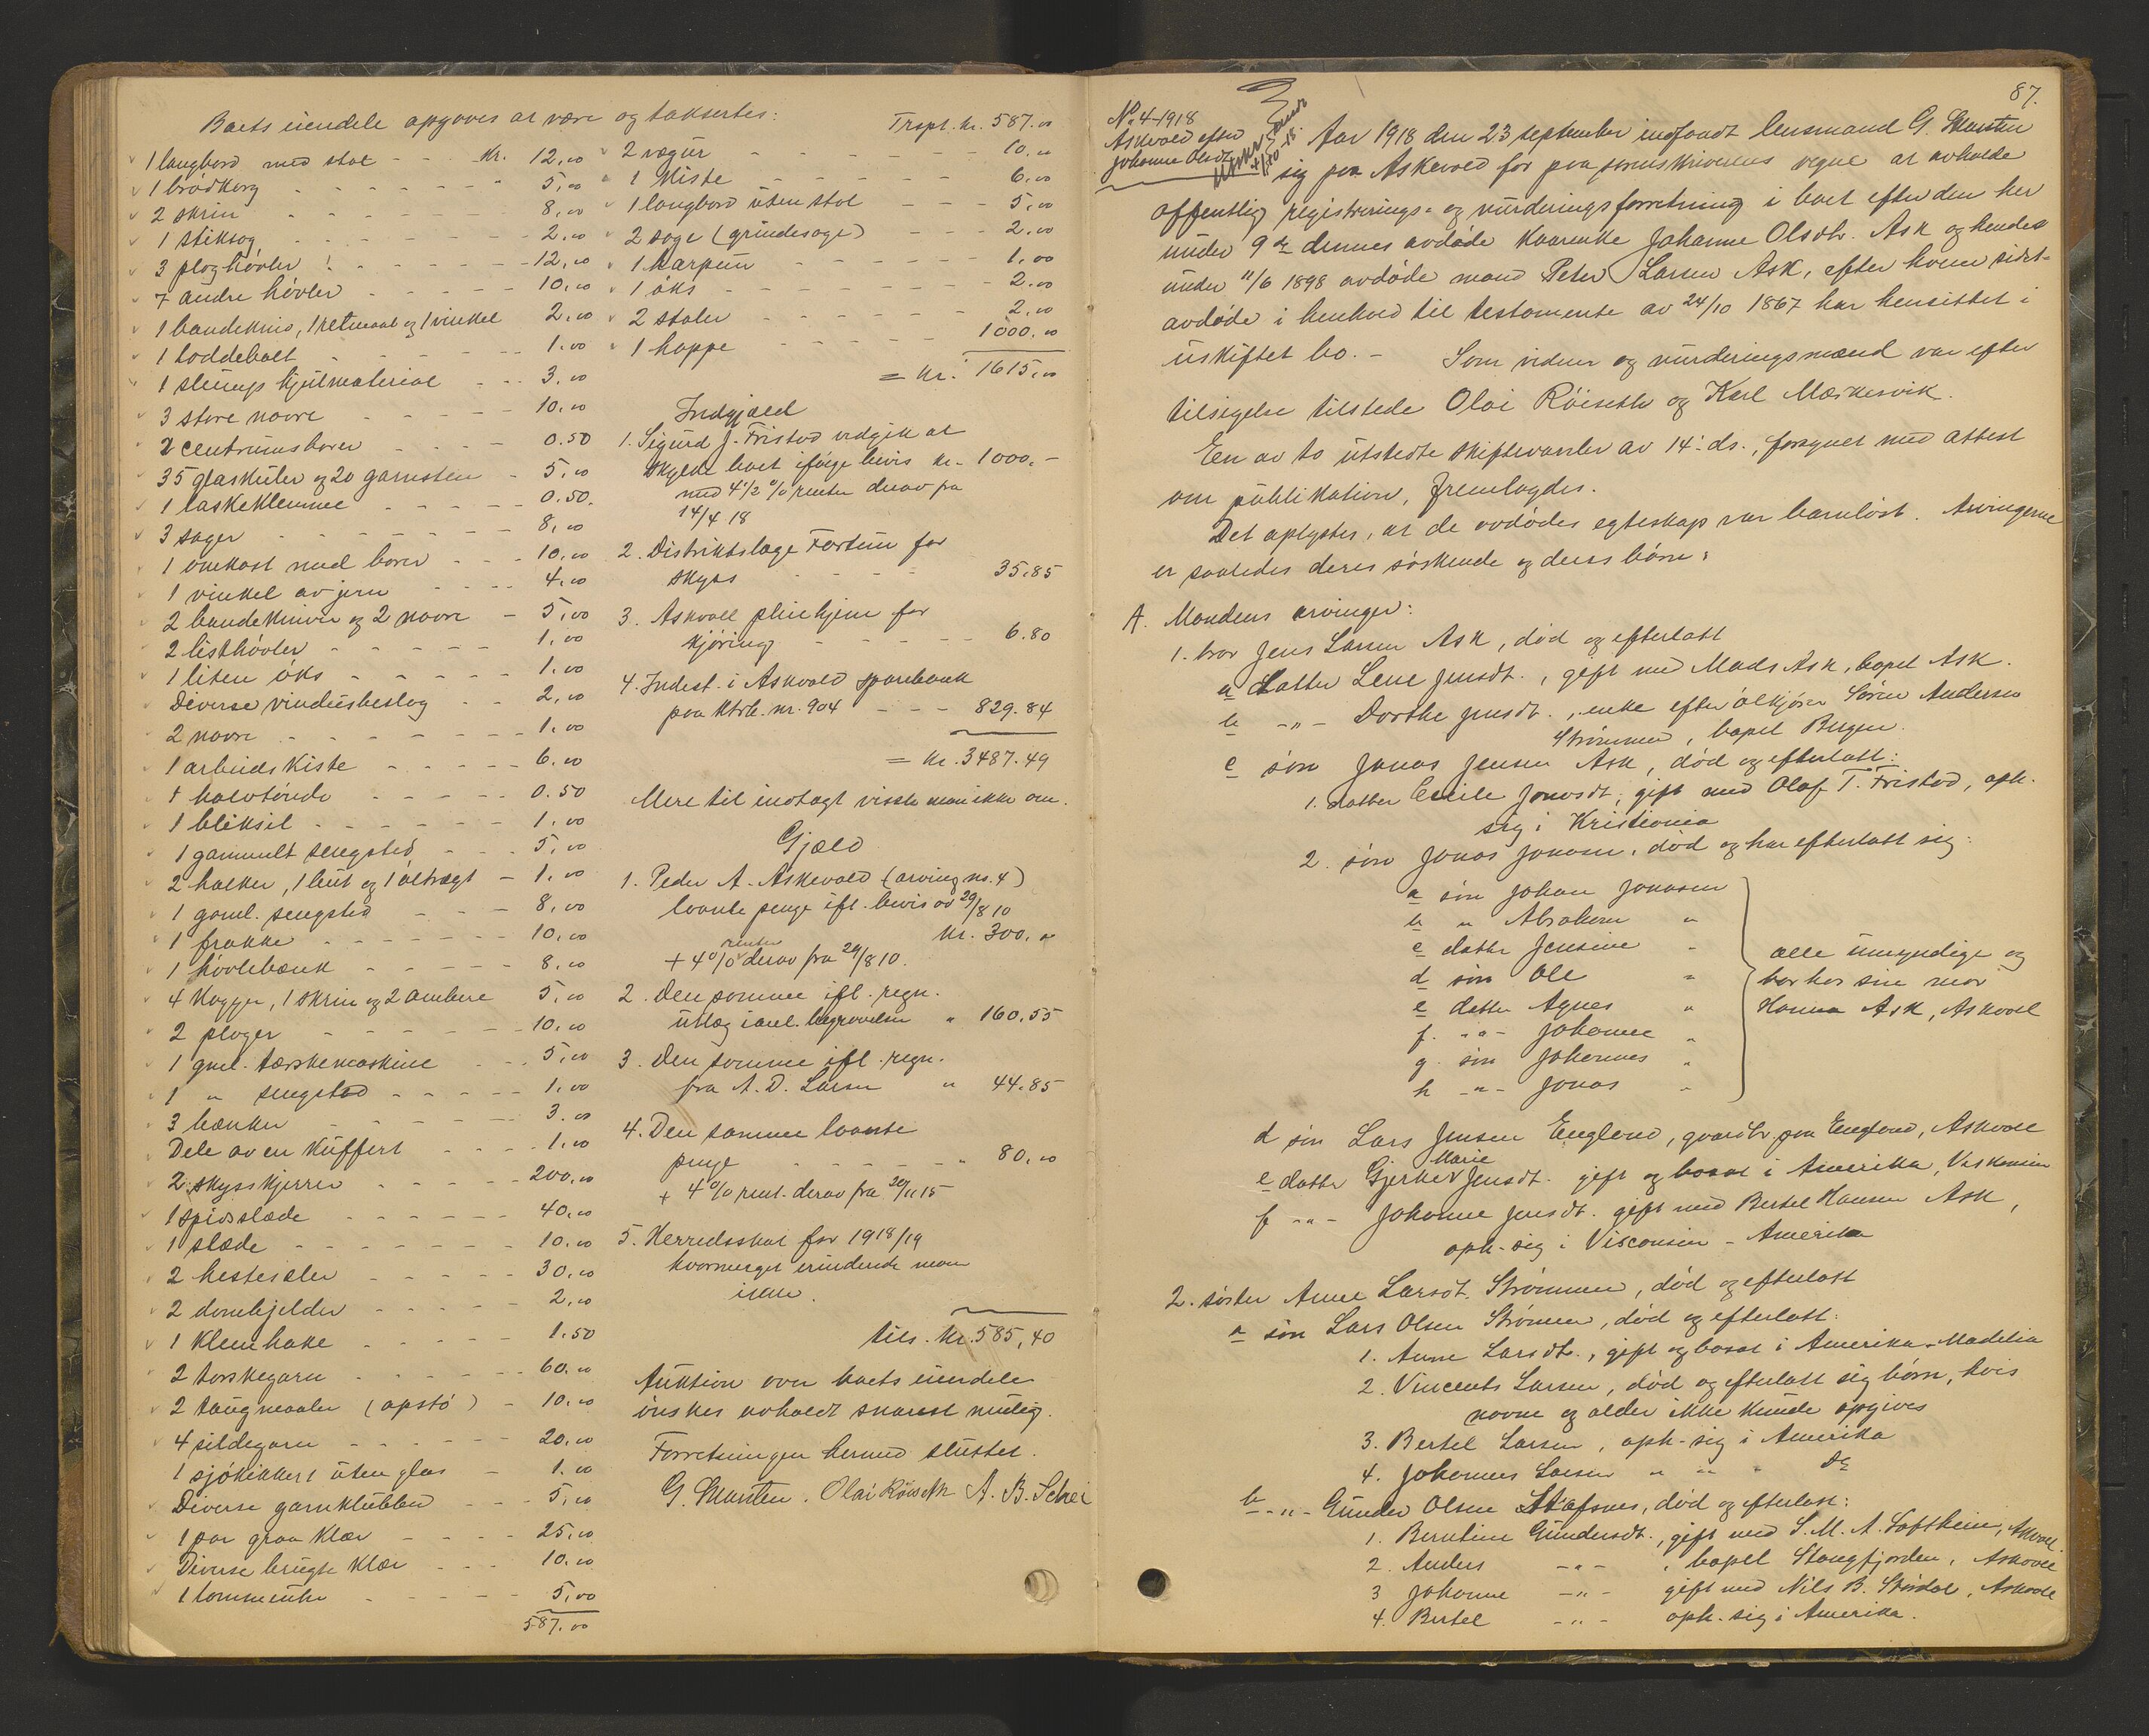 Boets eiendele opgoves at være og taksertes:
1 langbord med stol - - Kr. 12,00
1 brödkorg - - - - " 5,00
2 skrin - - - - 8,00
1 stiksag - - - - 2,00
3 ploghövler - - - - 12,00
7 andre hövler - - - - 10,00
1 bandekniv, 1 retmaal og 1 vinkel 2,00
1 loddebolt - - - - 1.00
1 slumps hjulmaterial - - - 3,00
3 store navre - - - - 10,00
2 centrumsborer - - - - 0.50
35 glaskuler og 20 garnsten - 5,00
1 laskeklemme - - - - 0.50.
3 sager - - - - 8,00
1 omkast med borer - - - 10,00
1 vinkel av jern - - - - 4,00
2 bandekniver og 2 navre - 5,00
2 listhövler - - - - 1,00
1 liten öks - - - - 1,00
Diverse vindusbeslag - - 2,00
2 navre - - - - 1,00
1 arbeidskiste - - - - 6,00
1 halvtönde - - - - 0.50
1 bliksil - - - - 1,00
1 gammelt sengsted - - - 5,00
2 halker, 1 but og 1 öltragt - 1,00
1 gaml. sengsted - - - 8,00
1 frakke - - - - 10,00
1 hövlebænk - - - - 8,00
4 kagger, 1 skrin og 2 ambere 5,00
2 ploger - - - - 10,00
1 gml. tærskemaskine - - - 5,00
1 " sengsted - - - - 1,00
3 bænker - - - - 3.00
Dele av en kuffert - - - 1,00
2 skysskjerrer - - - - 200,00
1 spidsslæde - - - - 40,00
1 slæde - - - - 10,00
2 hesteseler - - - - 30,00
2 dombjelder - - - - 2,00
1 klemhake - - - - 1.50
2 torskegarn - - - - 60.00
2 taugmaaler (opstö) - 10,00
4 sildegarn - - - - 20,00
1 sjökikkert uten glas - 1.00
Diverse garnklubber - - - 5,00
1 par graa klær - - - - 25,00
Diverse brugte klær - - - 10,00
1 lommeuhr - - - - 5,00
587.00
Trspt. kr. 587.00
2 vægur - - - - 10.00
1 kiste - - - - 6.00
1 langbord uten stol - - - 5,00
2 sage (grindesage) - - - 2.00
1 harpun - - - - 1,00
1 öks - - - - 2.00
2 stoler - - - - 2,00
1 hoppe - - - - 1000.00
= kr. 1615,00
Indgjæld
1. Sigurd J. Fristad vedgik at
skylde boet ifölge bevis kr. 1000.-
med 4 1/2 % renter derav fra
14/4 18
2. Distriktslæge Fortun for
skyss - - - - 35.85
3. Askvoll pleiehjem for
kjöring - - - - 6.80
4. Indest. i Askvold sparebank
paa ktrb. nr. 904 - - - 829.84
= kr. 3487.49
Mere til indtægt visste man ikke om.
Gjæld
1. Peder A. Askevold (arving nr. 4)
laante penge ifl. bevis av 29/8 10
kr. 300.00
+ 4 % renter derav fra 29/8 10.
2. Den samme ifl. regn.
utlæg i anl. begravelsen " 160.55
3. Den samme ifl. regn.
fra A. D. Larsen " 44.85
4. Den samme laante
penge - - - - " 80,00
+ 4 % rent. derav fra 20/11 15
5. Herredsskat for 1918/19
hvormeget erindrede man
ikke.
tils. kr. 585,40
Auktion over boets eiendele
önskes avholdt snarest mulig.
Forretningen hermed sluttet.
G. Olai Röiseth A. B. Schei
87.
No. 4-1918
Askvold efter
Johanne Olsdt.
4/10-18.
Aar 1918 den 23 september indfandt lensmand G.
sig paa Askevold for paa sorenskriverens vegne at avholde
offentlig registrerings- og vurderingsforretning i boet efter den her
under 9 de dennes avdöde kaarenke Johanne Olsdtr. Ask og hendes
under 11/6 1898 avdöde mand Peter Larsen Ask, efter hvem sidst-
avdöde i henhold til testamente av 24/10 1867 har hensittet i
uskiftet bo. - Som vidner og vurderingsmænd var efter
tilsigelse tilstede Olai Röiseth og Karl Markesvik.
Een av to utstedte skiftevarsler av 14. ds., forsynet med attest
om publikation, fremlagdes.
Det oplystes, at de avdödes egteskap var barnlöst. Arvingerne
er saaledes deres söskende og deres börn:
A. Mandens arvinger:
1. bror Jens Larsen Ask, död og efterlatt
a datter Lene Jensdt., gift med Mads Ask, bopel Ask.
b -"- Dorthe Jensdt., enke efter ölkjörer Sören Andersen
Strömmen, bopel Bergen.
c sön Jonas Jensen Ask, död og efterlatt:
1. datter Cecile Jonasdt., gift med Olaf T. Fristad, oph.
sig i Kristiania
2. sön Jonas Jonasen, död og har efterlatt sig:
a sön Johan Jonasen
b " Abraham "
c datter Jensine "
d sön Ole "
e datter Agnes "
f. -"- Johanne "
g. sön Johannes "
h -"- Jonas "
alle umyndige og
bor hos sin mor
Hanna Ask, Askvoll
d sön Lars Jensen Englend, gaardbr. paa Englend, Askvoll
e datter Gjerke Marie Jensdt. gift og bosat i Amerika, Viskonsin
f -"- Johanne Jensdt. gift med Bertel Hansen Ask,
oph. sig i Visconsin - Amerika
2. söster Anne Larsdt. Strömmen, död og efterlatt
a sön Lars Olsen Strömmen, död og efterlatt:
1. Anne Larsdt., gift og bosat i Amerika - Madelia
2. Vincents Larsen, död og efterlatt sig börn, hvis
navne og alder ikke kunde opgives
3. Bertel Larsen, oph. sig i Amerika
4. Johannes Larsen " " " Do
b -"- Gunder Olsen Stafsnes, död og efterlatt:
1. Berntine Gundersdt., gift med S. M. A. Loftheim, Askvoll
2. Anders -"- , bopel Stongfjorden, Askvoll
3 Johanne -"- gift med Nils B. Stördal, Askvoll
4. Bertel -"- oph. sig i Amerika.